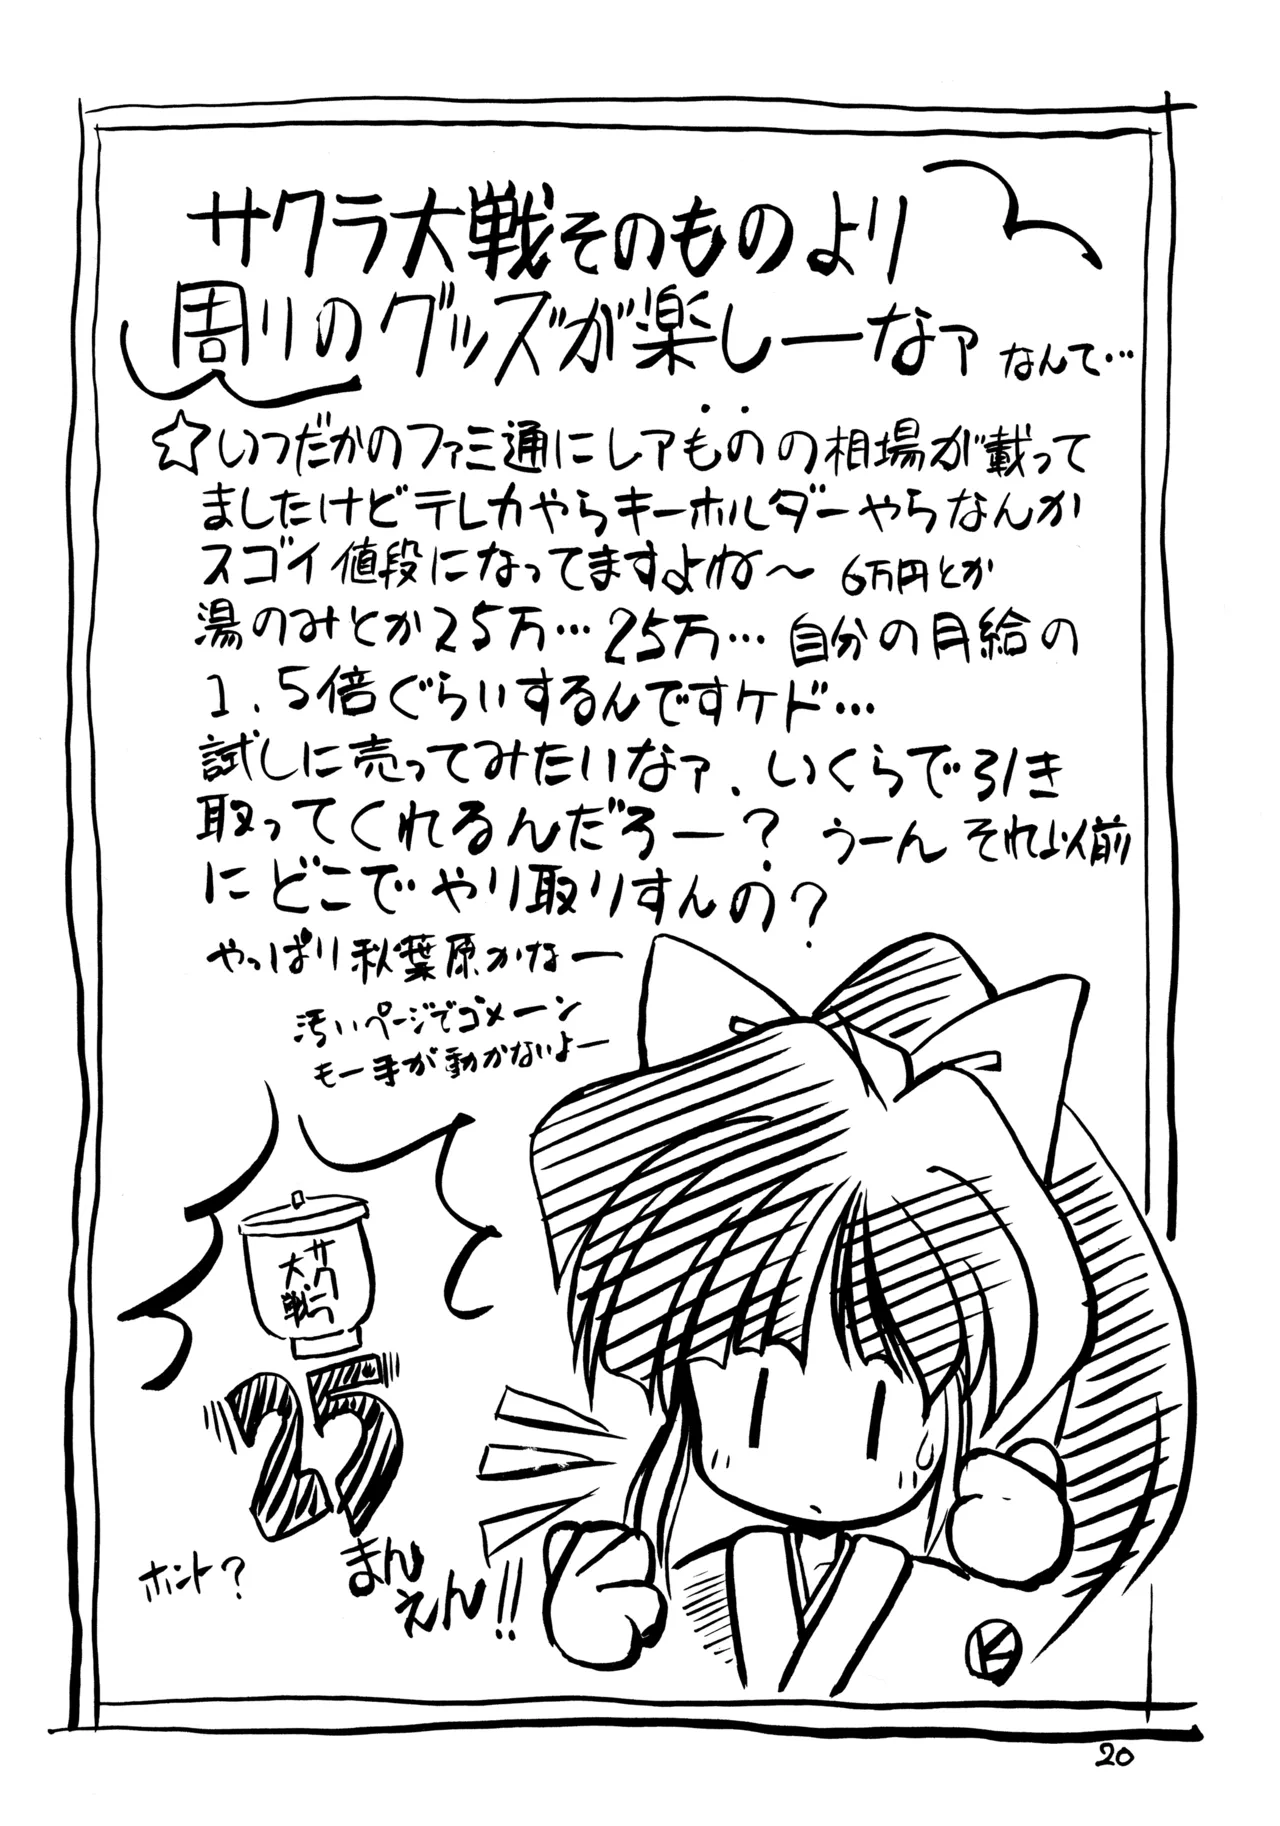 サクラ大戦そのものより
周りのグッズが楽しーなァ なんて…
☆いつだかのファミ通にレアものの相場が載って
ましたけどテレカやらキーホルダーやらなんか
スゴイ値段になってますよね～ 6万円とか
湯のみとか25万…25万… 自分の月給の
1.5倍ぐらいするんですケド…
試しに売ってみたいなァ. いくらで引き
取ってくれるんだろー? うーん それ以前
にどこでやり取りすんの?
やっぱり秋葉原かなー
汚いページでゴメーン
モー手が動かないよー
サクラ
大戦
25
まん
えん!!
ホント?
K
20